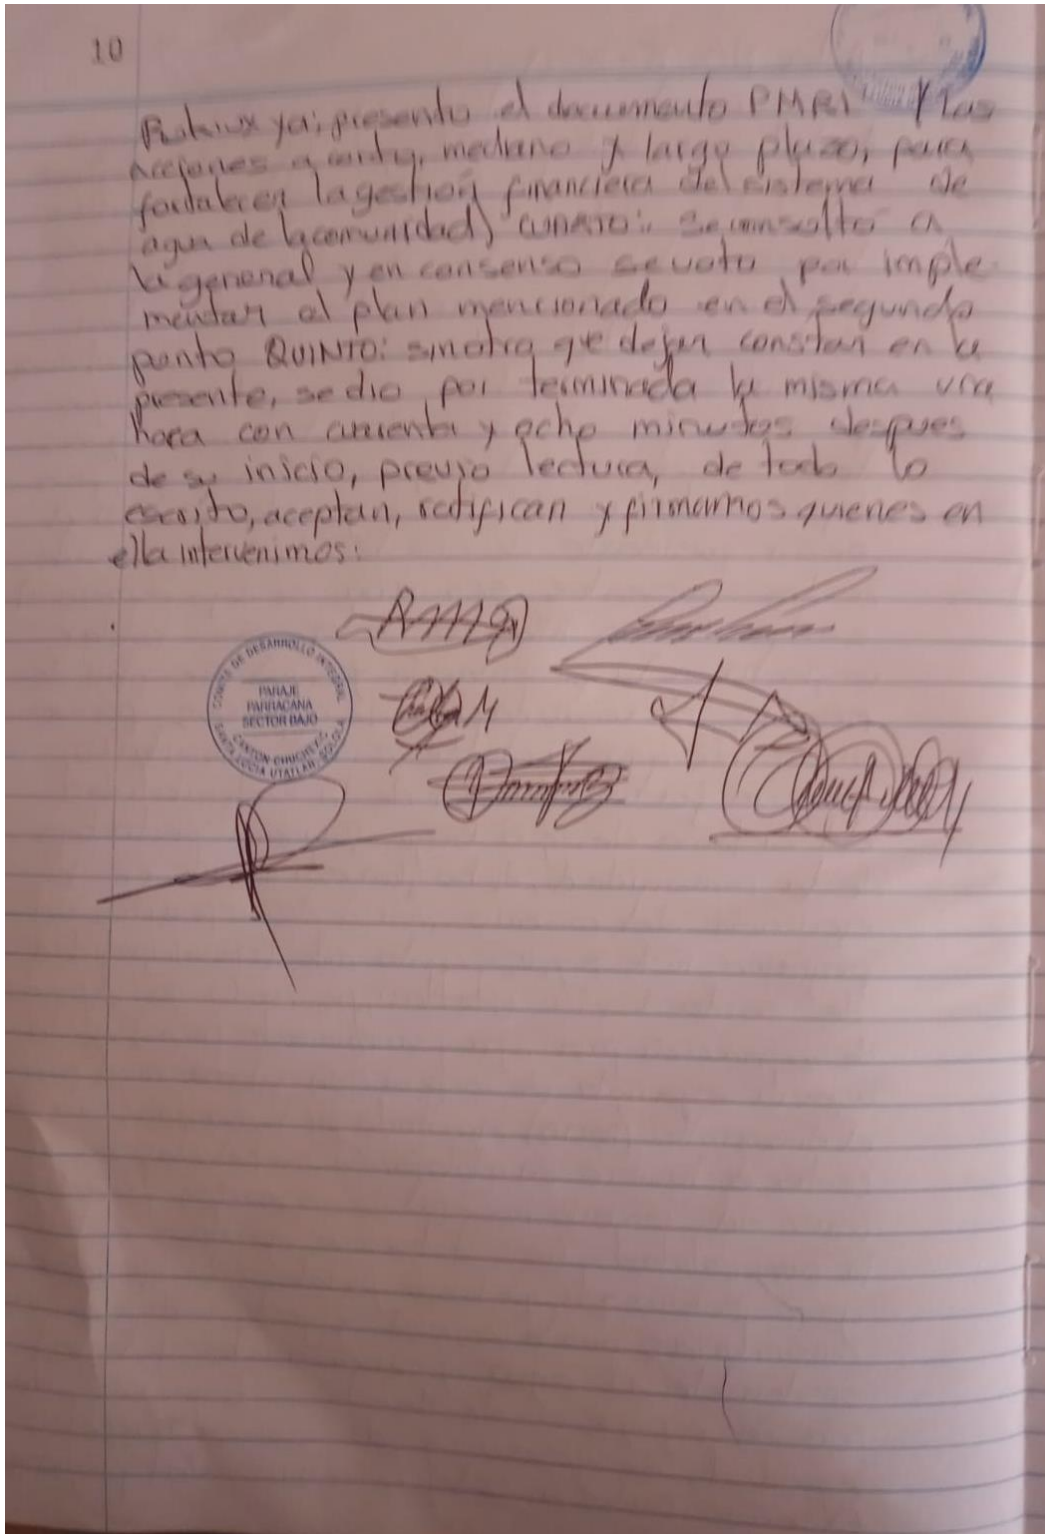 10
ya; presento el documento PMRI (las
acciones a corto, mediano y largo plazo, para
fortalecer la gestión financiera del sistema de
agua de la comunidad) CUARTO: Se consultó a
la general y en consenso se voto por imple-
mentar el plan mencionado en el segundo
punto QUINTO: sin otra que dejar constar en la
presente, se dio por terminada la misma una
hora con cincuenta y ocho minutos despues
de su inicio, previo lectura, de todo lo
escrito, aceptan, ratifican y firmamos quienes en
ella intervenimos:
COMITÉ DE DESARROLLO INTEGRAL
PARAJE
PARRACANA
SECTOR BAJO
CANTÓN CHUCHEXIC
SANTA LUCIA UTATLAN, SOLOLA